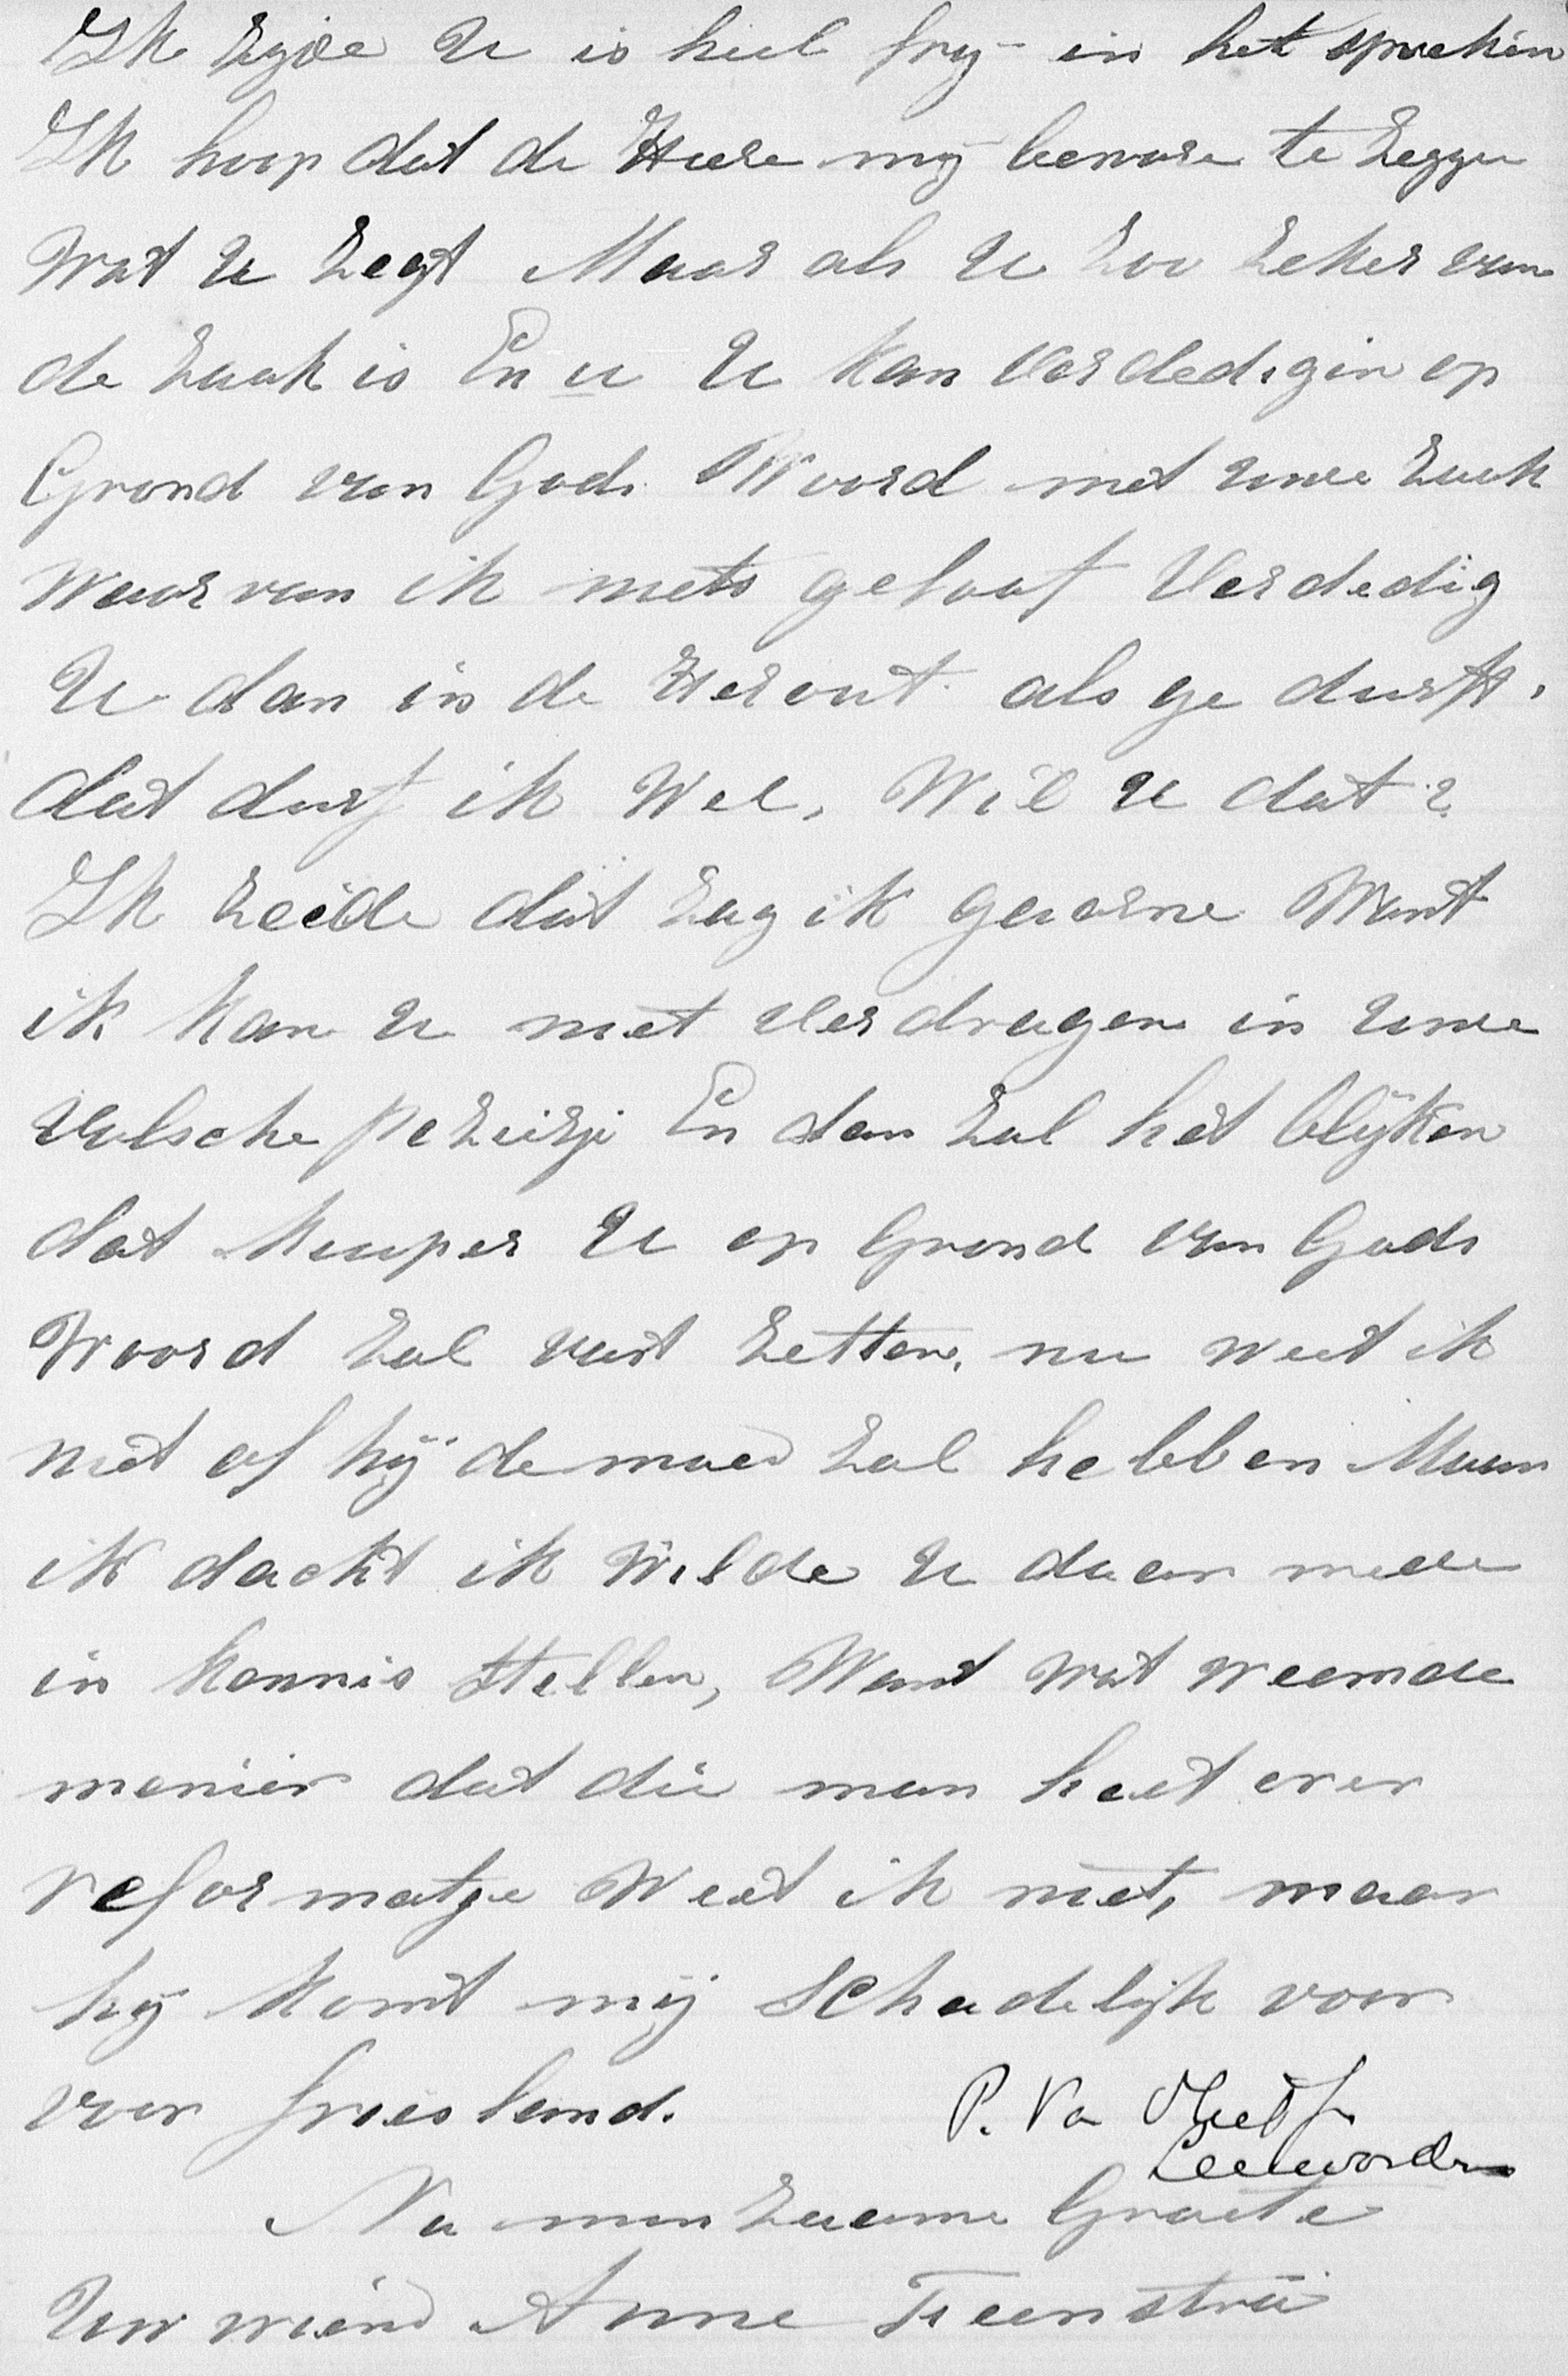 Ik zeide U is heel frij in het spreken
Ik hoop dat de Heere mij beware te zeggen
Wat U zegt Maar als U zoo zeker van
de zaak is En u U kan verdedigin op
Grond van Gods Woord met uwe zaak
Waar van ik niets geloof Verdedig
U dan in de Herout als ge durft.
dat durf ik Wel, Wil U dat?
Ik zeide dat zag ik gaarne Want
ik kan U niet verdragen in uwe
valsche pezizji En dan zal het blijken
dat Kuuper U op Grond van Gods
Woord zal vast zetten, nu weet ik
niet of hij de moed zal hebben Maar
ik dacht ik Wilde U daar mede
in kennis stellen, Want wat vreemde
manier dat die man heet over
reformatje Weet ik niet, maar
hij komt mij Schadelijk voor
voor friesland.
P. Va
Leeuwarden
Na minzaame Groete
Uw vriend Anne Feenstra